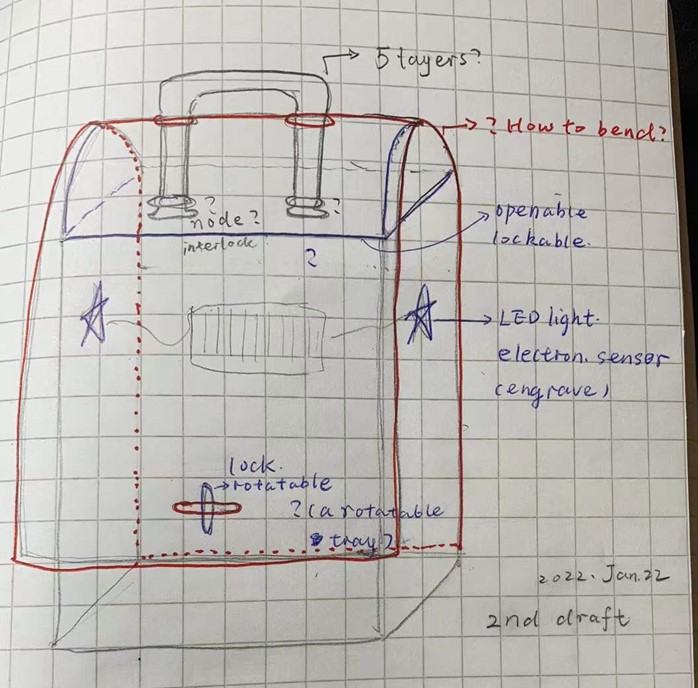 5 layers?
? How to bend?
openable
lockable.
? ?
node?
interlock
?
LED light.
electron. sensor
(engrave)
lock.
rotatable
? (a rotatable
tray?
2022. Jan. 22
2nd draft